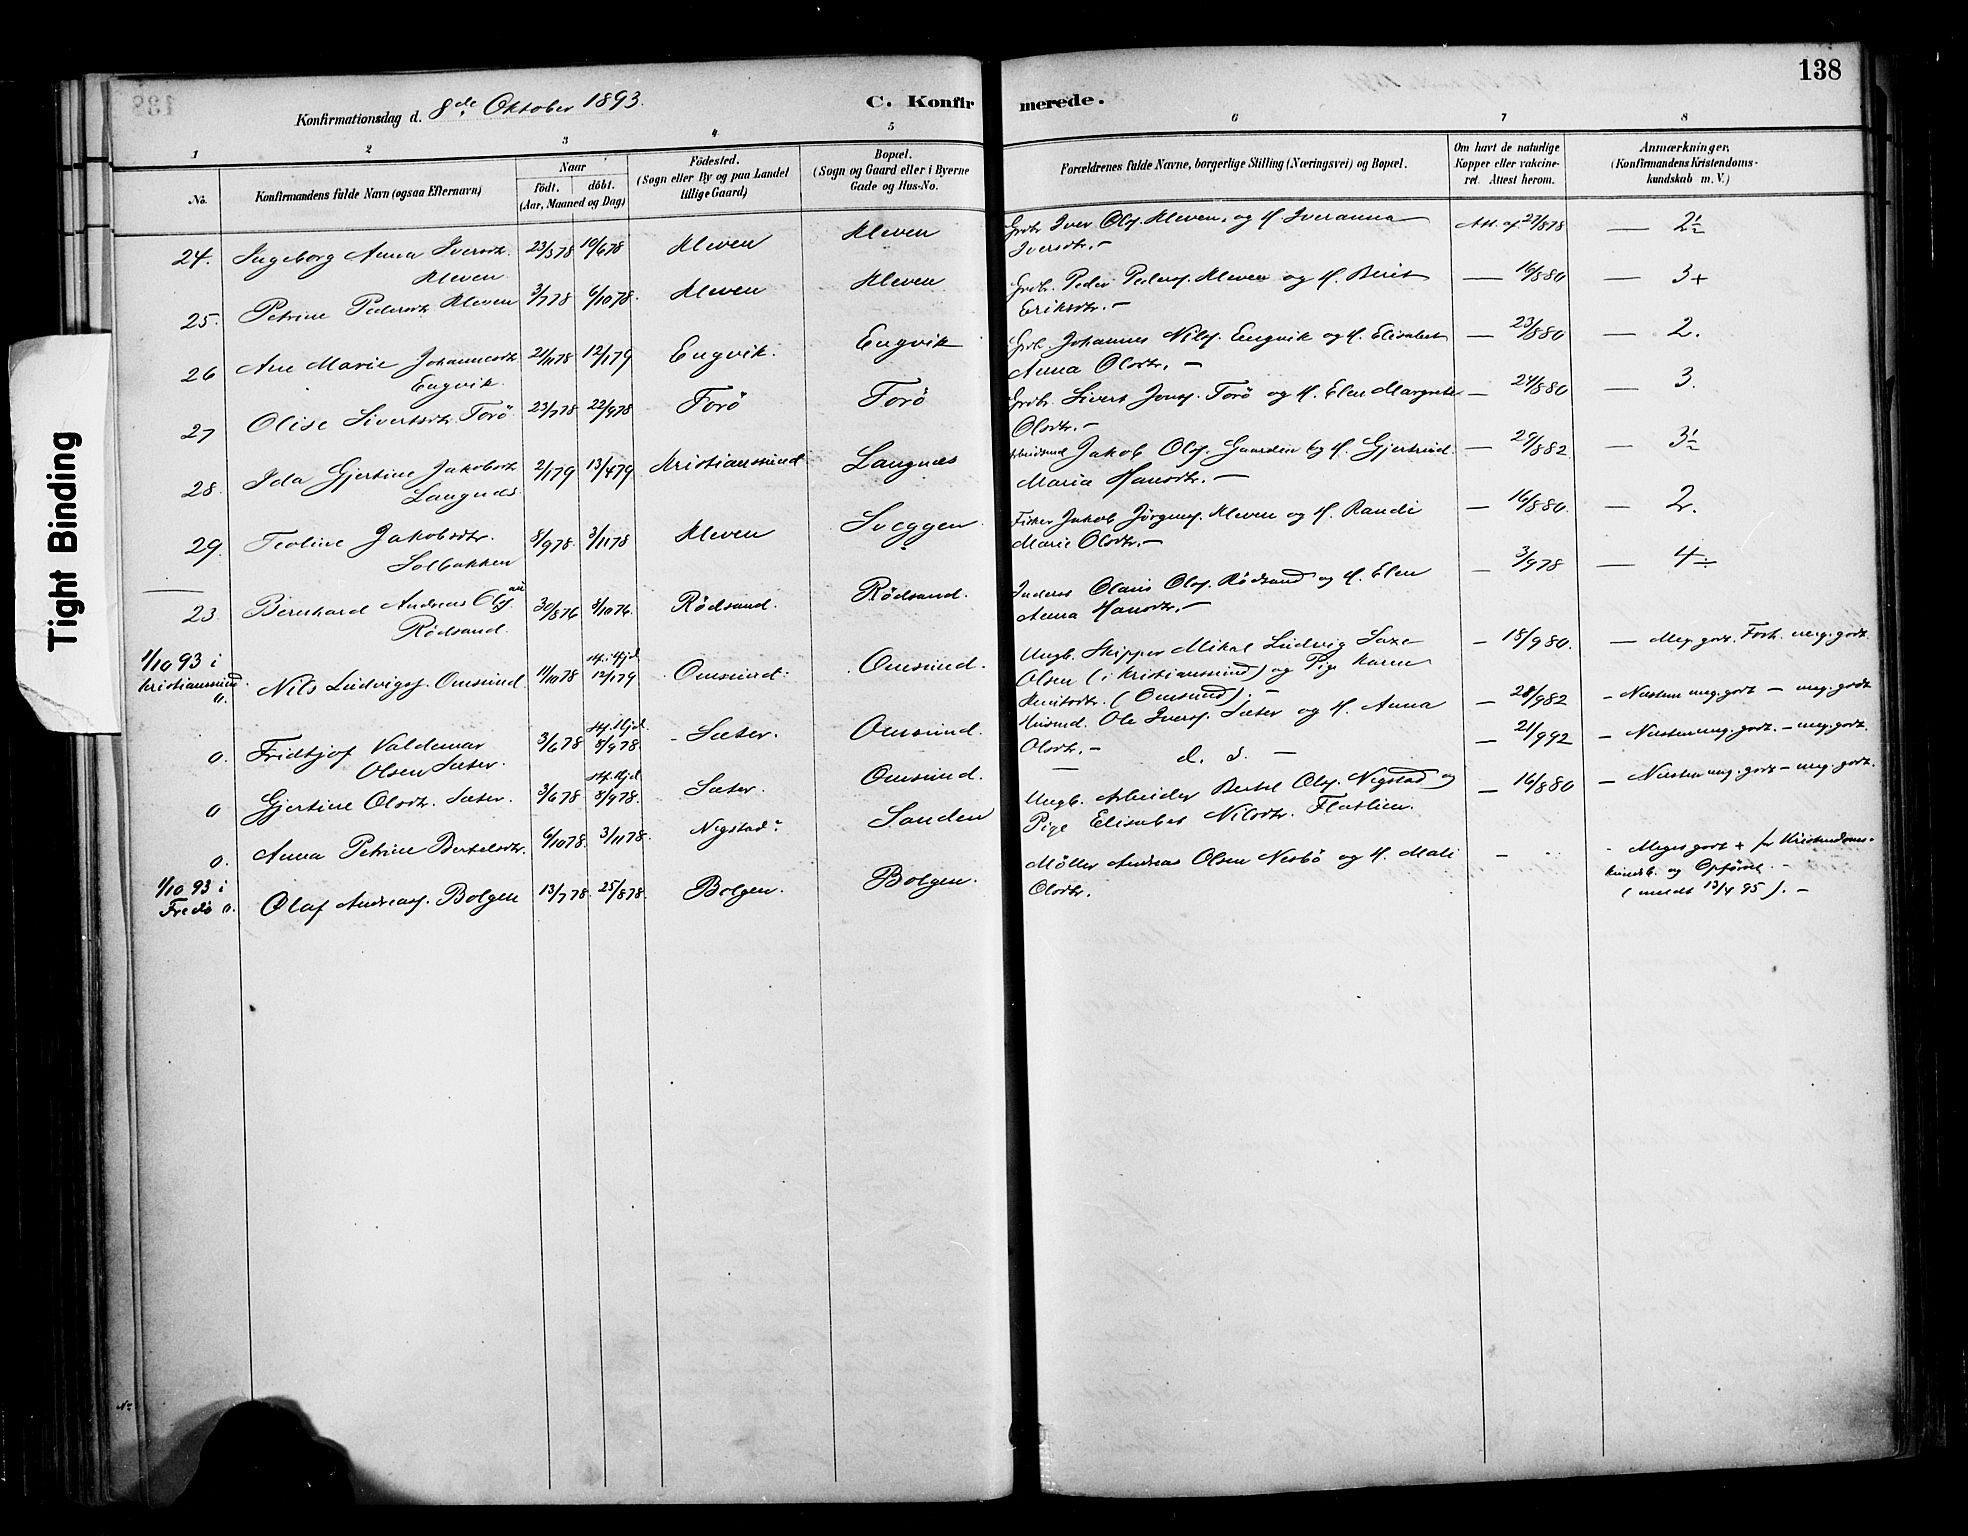 138
Konfirmationsdag d. 8de Oktober 1893.
C. Konfirmerede.
1 2 3 4 5 6 7 8
No.
Konfirmandens fulde Navn (ogsaa Efternavn)
Naar
födt. döbt.
(Aar, Maaned og Dag)
Födested.
(Sogn eller By og paa Landet
tillige Gaard)
Bopæl.
(Sogn og Gaard eller i Byerne
Gade og Hus-No.
Forældrenes fulde Navne, borgerlige Stilling (Næringsvei) og Bopæl.
Om havt de naturlige
Kopper eller vakcine-
ret. Attest herom.
Anmærkninger,
(Konfirmandens Kristendoms-
kundskab m. V.)
24. Ingeborg Anna Iversdtr. Kleven 23/3 78 10/6 78 Kleven Kleven Grdbr. Iver Ols. Kleven, og H. Iveranna
Iversdtr. — Att. af 27/8 78 — 2÷
25. Petrine Pedersdtr. Kleven 3/7 78 6/10 78 Kleven Kleven Grdb. Peder Peders. Kleven og H. Berit
Eriksdtr. — — 16/8 80 — 3+
26 Ane Marie Johannesdtr. Engvik. 21/11 78 12/1 79 Engvik. Engvik Grdb. Johannes Nils. Engvik og H. Elisabet
Anna Olsdtr. — — 23/8 80 — 2.
27 Olise Sivertsdtr. Torö 23/7 78 22/9 78 Torö Torö Grdbr. Sivert Jons. Torö og H. Elen Margrete
Olsdtr. — — 24/8 80 — 3.
28. Ida Gjertine Jakobsdtr. Langnes. 2/1 79 13/4 79 Kristianssund Langnes Jakob Ols. Gaarden og H. Gjertrud
Maria Hansdtr. — — 29/8 82 — 3÷
29. Teoline Jakobsdtr. Solbakken 8/9 78. 3/11 78 Kleven Sveggen. Fisker Jakob Jörgens. Kleven og H. Randi
Marie Olsdtr. — — 16/8 80. — 2.
23. Bernhard Andreas Ols. Rödsand. 30/8 76 8/10 76. Rödsand. Rödsand. Inderst Olaus Ols. Rödsand og H. Elen
Anna Hansdtr. — — 3/9 78 — 4÷
1/10 93 i
Kristianssund.
o. Nils Ludvigs. Omsund 11/10 78 12/1 79 Omsund. Omsund. Ungk. Skipper Mikal Ludvig Saxe
Olsen (i Kristianssund) og Pige Karen
Knutsdtr. (Omsund). — — 18/9 80. — Meg. godt. Forh. meg. godt.
o. Fridtjof Valdemar Olsen Sæter. 3/6 78 8/9 78. Sæter. Omsund. Husmd. Ole Ivers. Sæter og H. Anna
Olsdtr. — — 28/9 82 — Næsten meg. godt — meg. godt
o Gjertine Olsdtr. Sæter. 3/6 78 8/9 78. Sæter. Omsund. — d. s. — — 21/9 92 — Næsten meg. godt. — meg. godt.
o. Anna Petrine Bertelsdtr. 6/10 78. 3/11 78. Negstad. Sanden Ungk. Arbeider Bertel Ols. Negstad og
Pige Elisabet Nilsdtr. Flatlien. — 16/8 80 — Næsten meg. godt — meg. godt.
1/10 93 i
Fredö o. Olaf Andreas. Bolgen 13/7 78. 25/8 78. Bolgen. Bolgen. Möller Andreas Olsen Nesbö og H. Mali
Olsdtr. — Meget godt + for Kristendoms-
kundsk. og Opförsel —
(meldt 13/4 95). —
Tight Binding